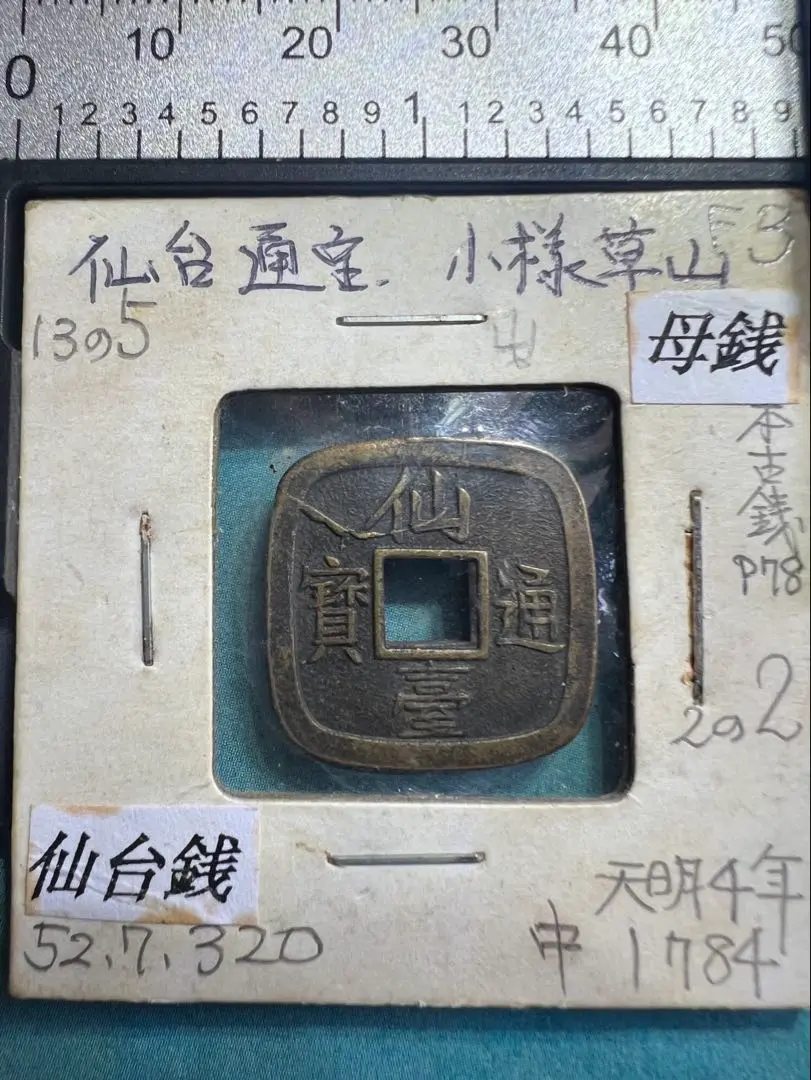 0 10 20 30 40 50
1 2 3 4 5 6 7 8 9 1 1 2 3 4 5 6 7 8 9
仙台通宝. 小様草山
13の5
母銭
本古銭
P78
仙
寳 通
臺
2の2
仙台銭
天明4年
52.7.320
中 1784